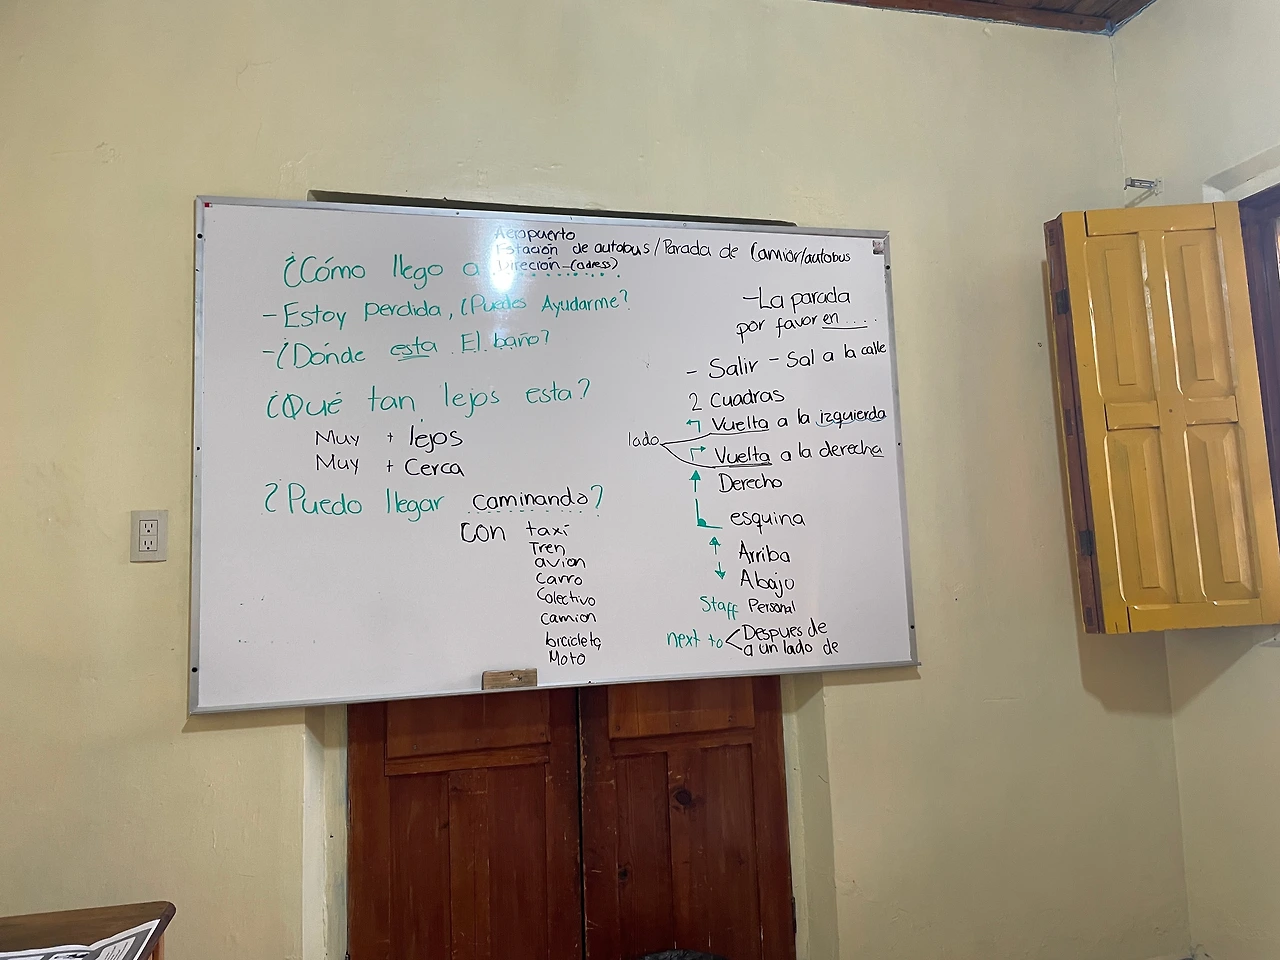 Aeropuerto
Estación de autobus/Parada de Camión/autobus
¿Cómo llego a Direción-(adress)
- Estoy perdida, ¿Puedes Ayudarme?
- ¿Dónde esta El baño?
¿Qué tan lejos esta?
Muy + lejos
Muy + Cerca
¿Puedo llegar caminando?
con taxi
Tren
avion
Carro
Colectivo
camion
bicicleta
Moto
- La parada
por favor en ....
- Salir - Sal a la calle
2 Cuadras
Vuelta a la izguierda
lado
Vuelta a la derecha
Derecho
esquina
Arriba
Abajo
Staff Personal
next to < Despues de
a un lado de